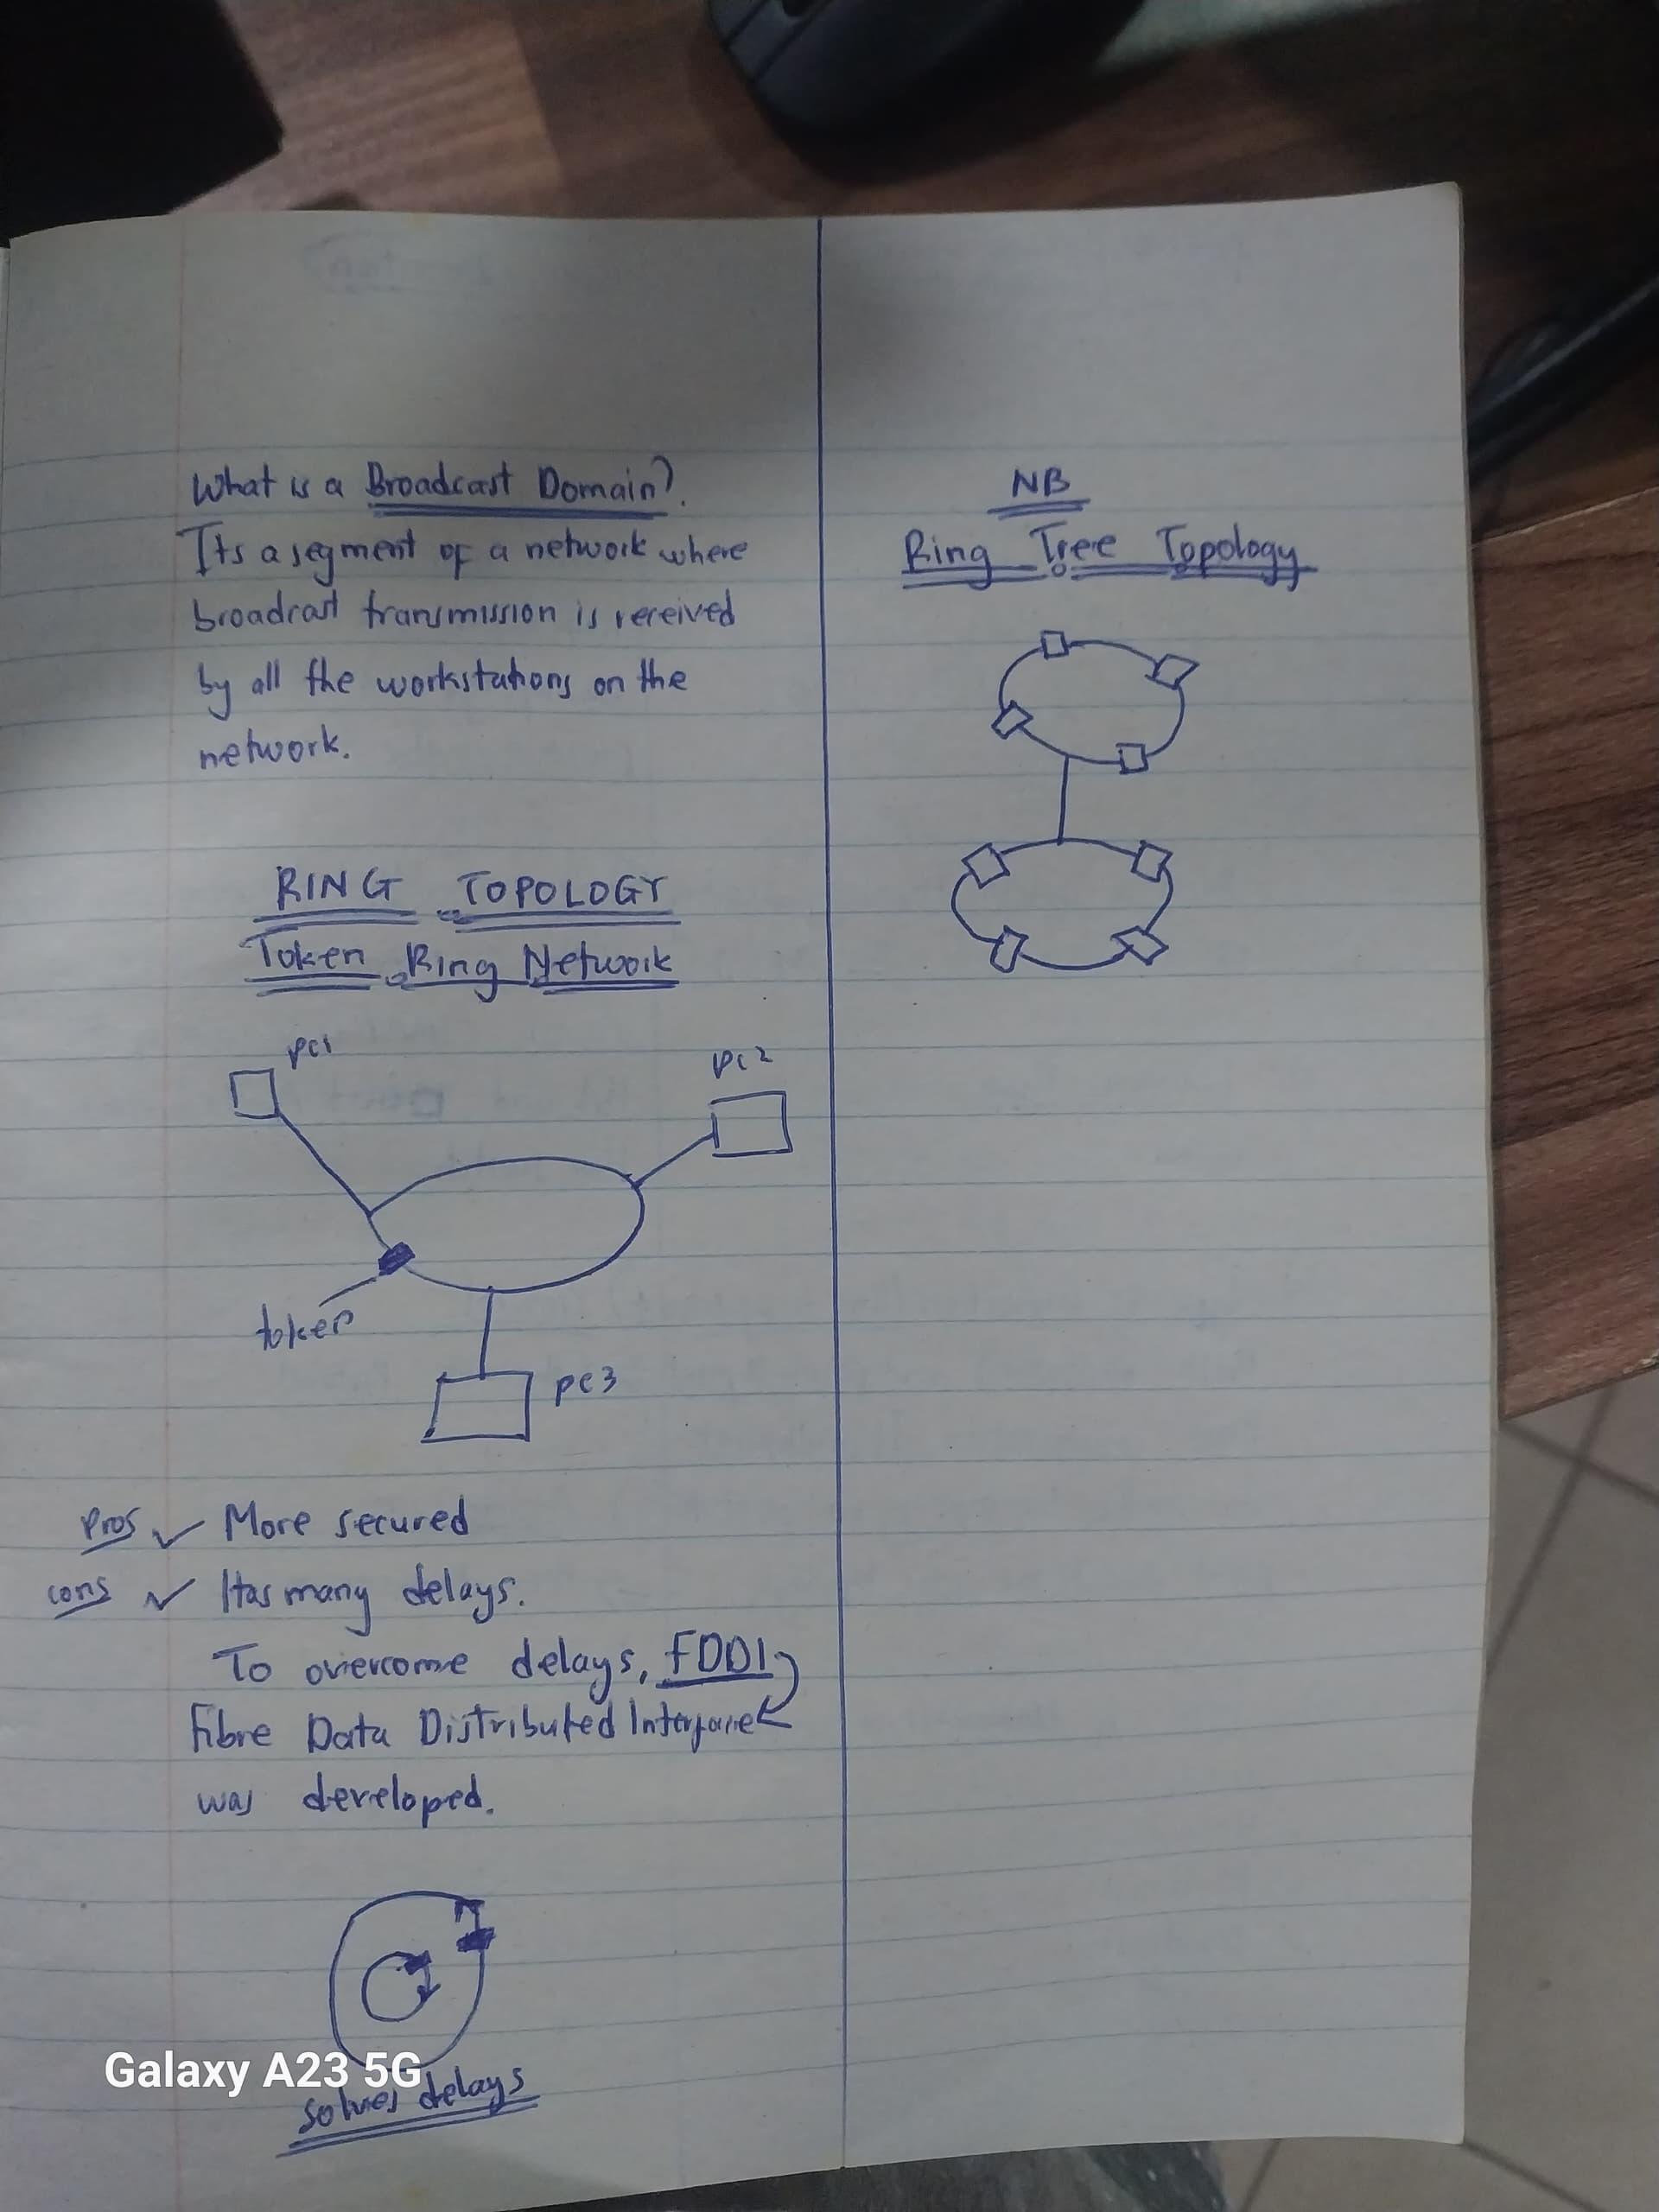 What is a Broadcast Domain?.
Its a segment of a network where
broadcast transmission is received
by all the workstations on the
network.
RING TOPOLOGY
Token Ring Network
pc1
pc2
token
pc3
Pros ✓ More secured
cons ✓ Has many delays.
To overcome delays, FDDI
Fibre Data Distributed Interface
was developed.
solves delays
NB
Ring Tree Topology
Galaxy A23 5G